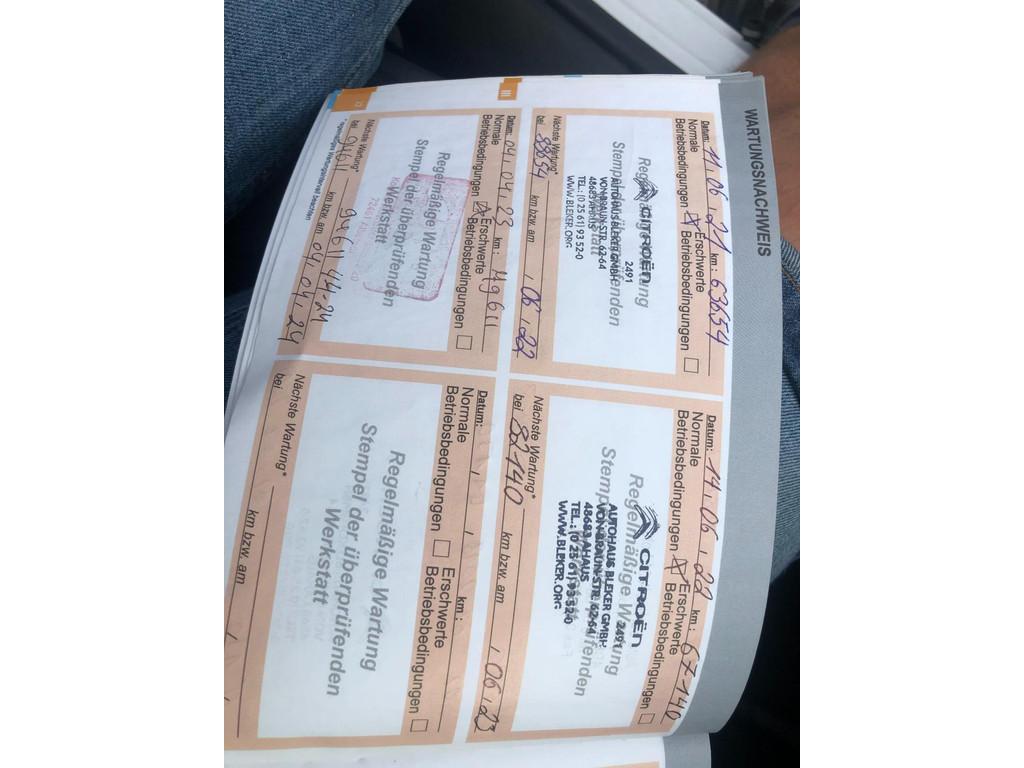 WARTUNGSNACHWEIS
Datum: 11.06.21 km: 63654
Normale Betriebsbedingungen ☒ Erschwerte Betriebsbedingungen ☐
Regelmäßige Wartung
Stempel der überprüfenden
Werkstatt
CITROËN
2491
AUTOHAUS BLEKER GMBH
VON-BRAUN-STR. 62-64
48683 AHAUS
TEL.: (0 25 61) 93 52-0
WWW.BLEKER.ORG
Nächste Wartung*
bei 88654 km bzw. am , 06 , 22
Datum: 14.06.22 km: 67140
Normale Betriebsbedingungen ☒ Erschwerte Betriebsbedingungen ☐
Regelmäßige Wartung
Stempel der überprüfenden
Werkstatt
CITROËN
2491
AUTOHAUS BLEKER GMBH
VON-BRAUN-STR. 62-64
48683 AHAUS
TEL.: (0 25 61) 93 52-0
WWW.BLEKER.ORG
Nächste Wartung*
bei 82140 km bzw. am , 06 , 23
III
Datum: 04.04.23 km:
Normale Betriebsbedingungen ☒ Erschwerte Betriebsbedingungen ☐
Regelmäßige Wartung
Stempel der überprüfenden
Werkstatt
Nächste Wartung*
bei 94611 km bzw. am 04.04.24
94611 4.4.24
Datum: , , km:
Normale Betriebsbedingungen ☐ Erschwerte Betriebsbedingungen ☐
Regelmäßige Wartung
Stempel der überprüfenden
Werkstatt
Nächste Wartung*
bei km bzw. am , ,